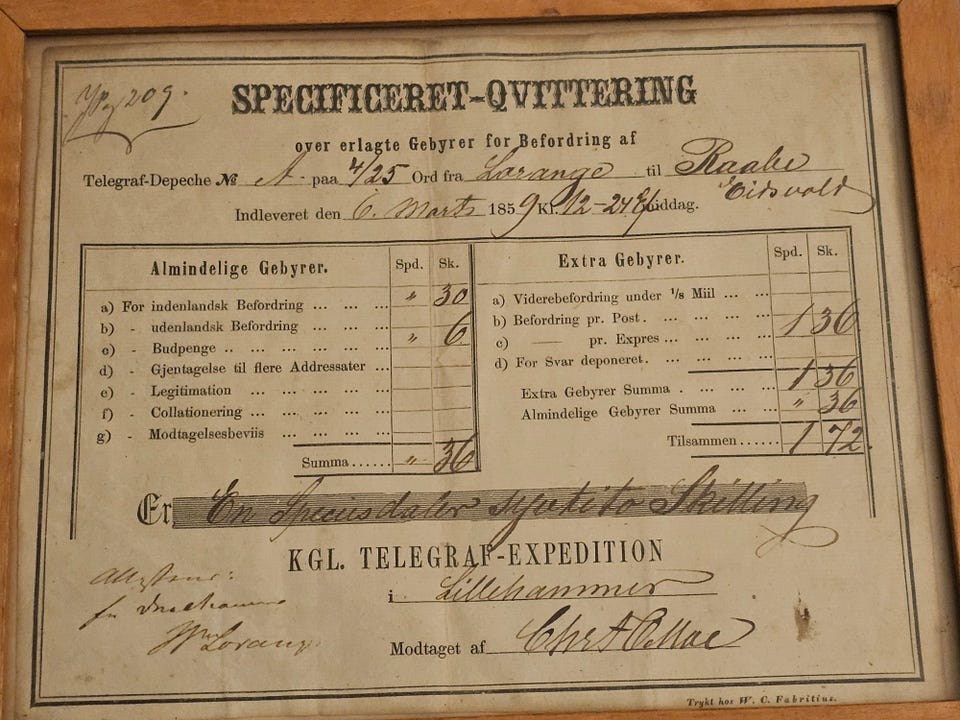 209.
SPECIFICERET-QVITTERING
over erlagte Gebyrer for Befordring af
Telegraf-Depeche № A. paa 4/25 Ord fra Lorange til Raabe
Eidsvold
Indleveret den 6. Marts 1859 Kl. 12-24 middag.
Almindelige Gebyrer. Spd. Sk.
a) For indenlandsk Befordring ... ... ... " 30
b) - udenlandsk Befordring ... ... ... " 6
c) - Budpenge .. ... ... ... ...
d) - Gjentagelse til flere Addressater ...
e) - Legitimation ... ... ... ...
f) - Collationering ... ... ... ...
g) - Modtagelsesbeviis ... ... ... ...
Summa...... " 36
Extra Gebyrer. Spd. Sk.
a) Viderebefordring under 1/8 Miil ... ...
b) Befordring pr. Post. ... ... ... 1 36
c) — pr. Expres ... ... ...
d) For Svar deponeret. ... ... ...
Extra Gebyrer Summa . ... ... 1 36
Almindelige Gebyrer Summa ... ... " 36
Tilsammen...... 1 72.
Er En Speciesdaler syttito Skilling
KGL. TELEGRAF-EXPEDITION
i Lillehammer
Modtaget af
Lorange
Trykt hos W. C. Fabritius.